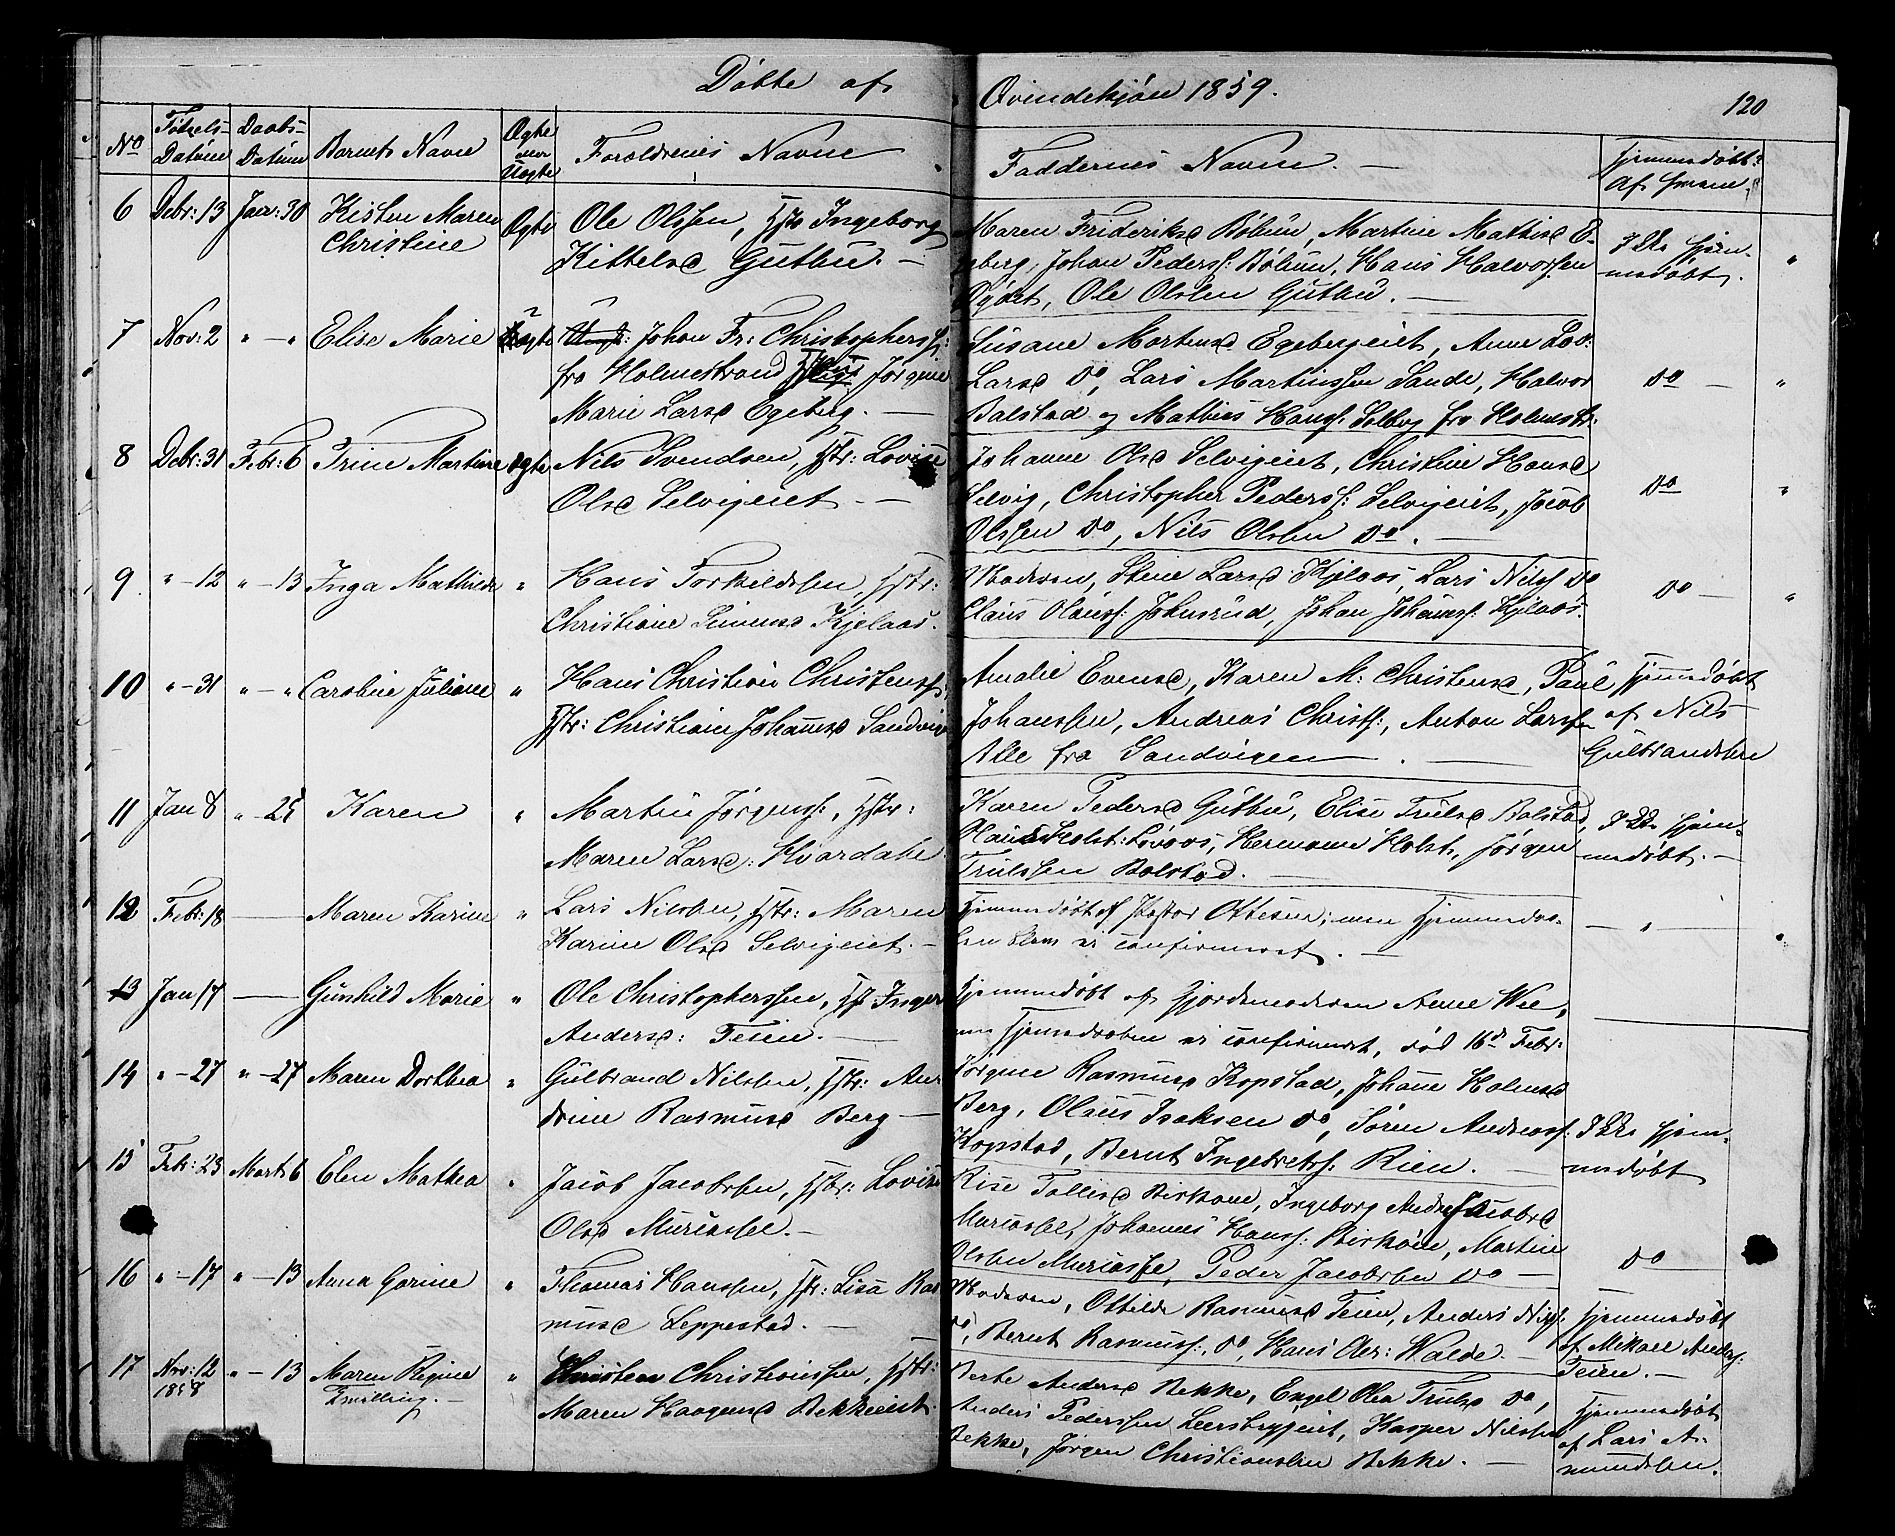 Døbte af Qvindekjøn 1859.
120
No
Fødsels-Datum
Daabs-Datum
Barnets Navn
Ægte eller Uægte
Forældrenes Navne
Faddernes Navne. —
Hjemmedøbt? Af hvem?
6 Debr: 13 Jan: 30 Kisten Maren Ægte Ole Olssen, Hstr Ingeborg
Christine Kittelsd Guthu. —
Maren Frideriksd Bøhun, Martine Mathisd E-
geberg, Johan Pederss: Bøhun, Hans Halvorssen
Ole Olsben Guthu. —
Ikke hjem-
medøbt.
7 Nov: 2 " — " Elise Marie Uægte Johan Fr: Christopherss:
fra Holmestrand Jørgine
Marie Larsd Egeberg. —
Susane Mortensd Egebergeiet, Anne Lov:
Larsd do, Lars Martinssen Sande, Halvor
Bolstad og Mathias Hanss: Solberg fra Holmestr:
do —
8 Debr: 31 Febr: 6 Trine Martine Ægte Nils Svendsen, Hstr: Lovise
Olsd Selvigeiet —
Johanne Olsd Selvigeiet, Christine Hansd
Selvig, Christopher Pederss: Selvigeiet, Jacob
Olssen do, Nils Olsben do. —
do
9 " — 12 " — 13 Inga Mathilde " Hans Torkildssen, Hstr:
Christiane Simensd Kjelaas.
Moderen, Stine Larsd Kjelaas, Lars Nilss do
Claus Olauss: Johnsrud, Johan Johanness: Kjelaas.
do —
10 " — 31 " — " Caroline Juliane " Hans Christian Christenss,
Hstr: Christiane Johannsd Sandvig
Amalie Evensd, Karen M: Christensd, Paul
Johanssen, Andreas Christs:, Anton Larssen
Alle fra Sandvigen —
Hjemmedøbt
af Nils
Gulbrandsben
11 Jan 8 " — 25 Karen " Martin Jørgenss:, Hstr:
Maren Larsd: Hvardahl
Karen Pedersd Guthu, Elise Trulsd Bolstad,
Hans Holst: Løvaas, Hermann Holst, Jørgen
Trulssen Bolstad. —
Ikke hjem-
medøbt. —
12 Febr: 18 — Maren Karine " Lars Nilsben, Hstr: Maren
Karine Olsd Selvigeiet. —
Hjemmedøbt af Pastor Ottesen; men Hjemmedaa-
ben blev ei confirmeret. —
— " —
13 Jan 17 — Gunhild Marie " Ole Christopherssen, Hst Inger
Andersd: Teien. —
Hjemmedøbt af Gjordemoderen Anne Wee,
men Hjemmedaaben ei confirmeret, død 16de Febr:
14 " — 27 " — 27 Maren Dorthea " Gulbrand Nilsben, Hstr: An-
drine Rasmusd Berg —
Jørgine Rasmusd Kopstad, Johanne Holmsd
Berg, Olaus Isaksen do, Søren Andreass:
Kopstad, Bernt Ingebretss: Rien. —
Ikke hjem-
medøbt
15 Febr: 23 Marts 6 Elen Mathea " Jacob Jacobsben, Hstr: Lovise
Olsd Muriassel. —
Rise Tollisd Birkone, Ingeborg Jacobsd
Muriassel, Johannes Hanss: Birkone, Martin
Olsben Muriassel, Peder Jacobsben do —
do
16 " — 17 " — 13 Anna Gorine " Thomas Hanssen, Hstr: Lisa Ras-
musd Leppestad. —
Moderen, Ottilde Rasmusd Teien, Anders Nilss:
do, Bernt Rasmuss:, do, Hans Ols: Walde. —
Hjemmedøbt
af Mikael Anders:
Teien. —
17 Nov: 12 " — 13 Maren Regine " Christen Christianssen, Hstr:
1858 Tvilling. — Maren Haagensd Bekkeeiet.
Berte Andersd Bekke, Engel Olea Trulsd do,
Anders Pederssen Leersbryggeiet, Kasper Nilssen
Bekke, Jørgen Christiansben Bekke. —
Hjemmedøbt
af Lars A-
mundsben.